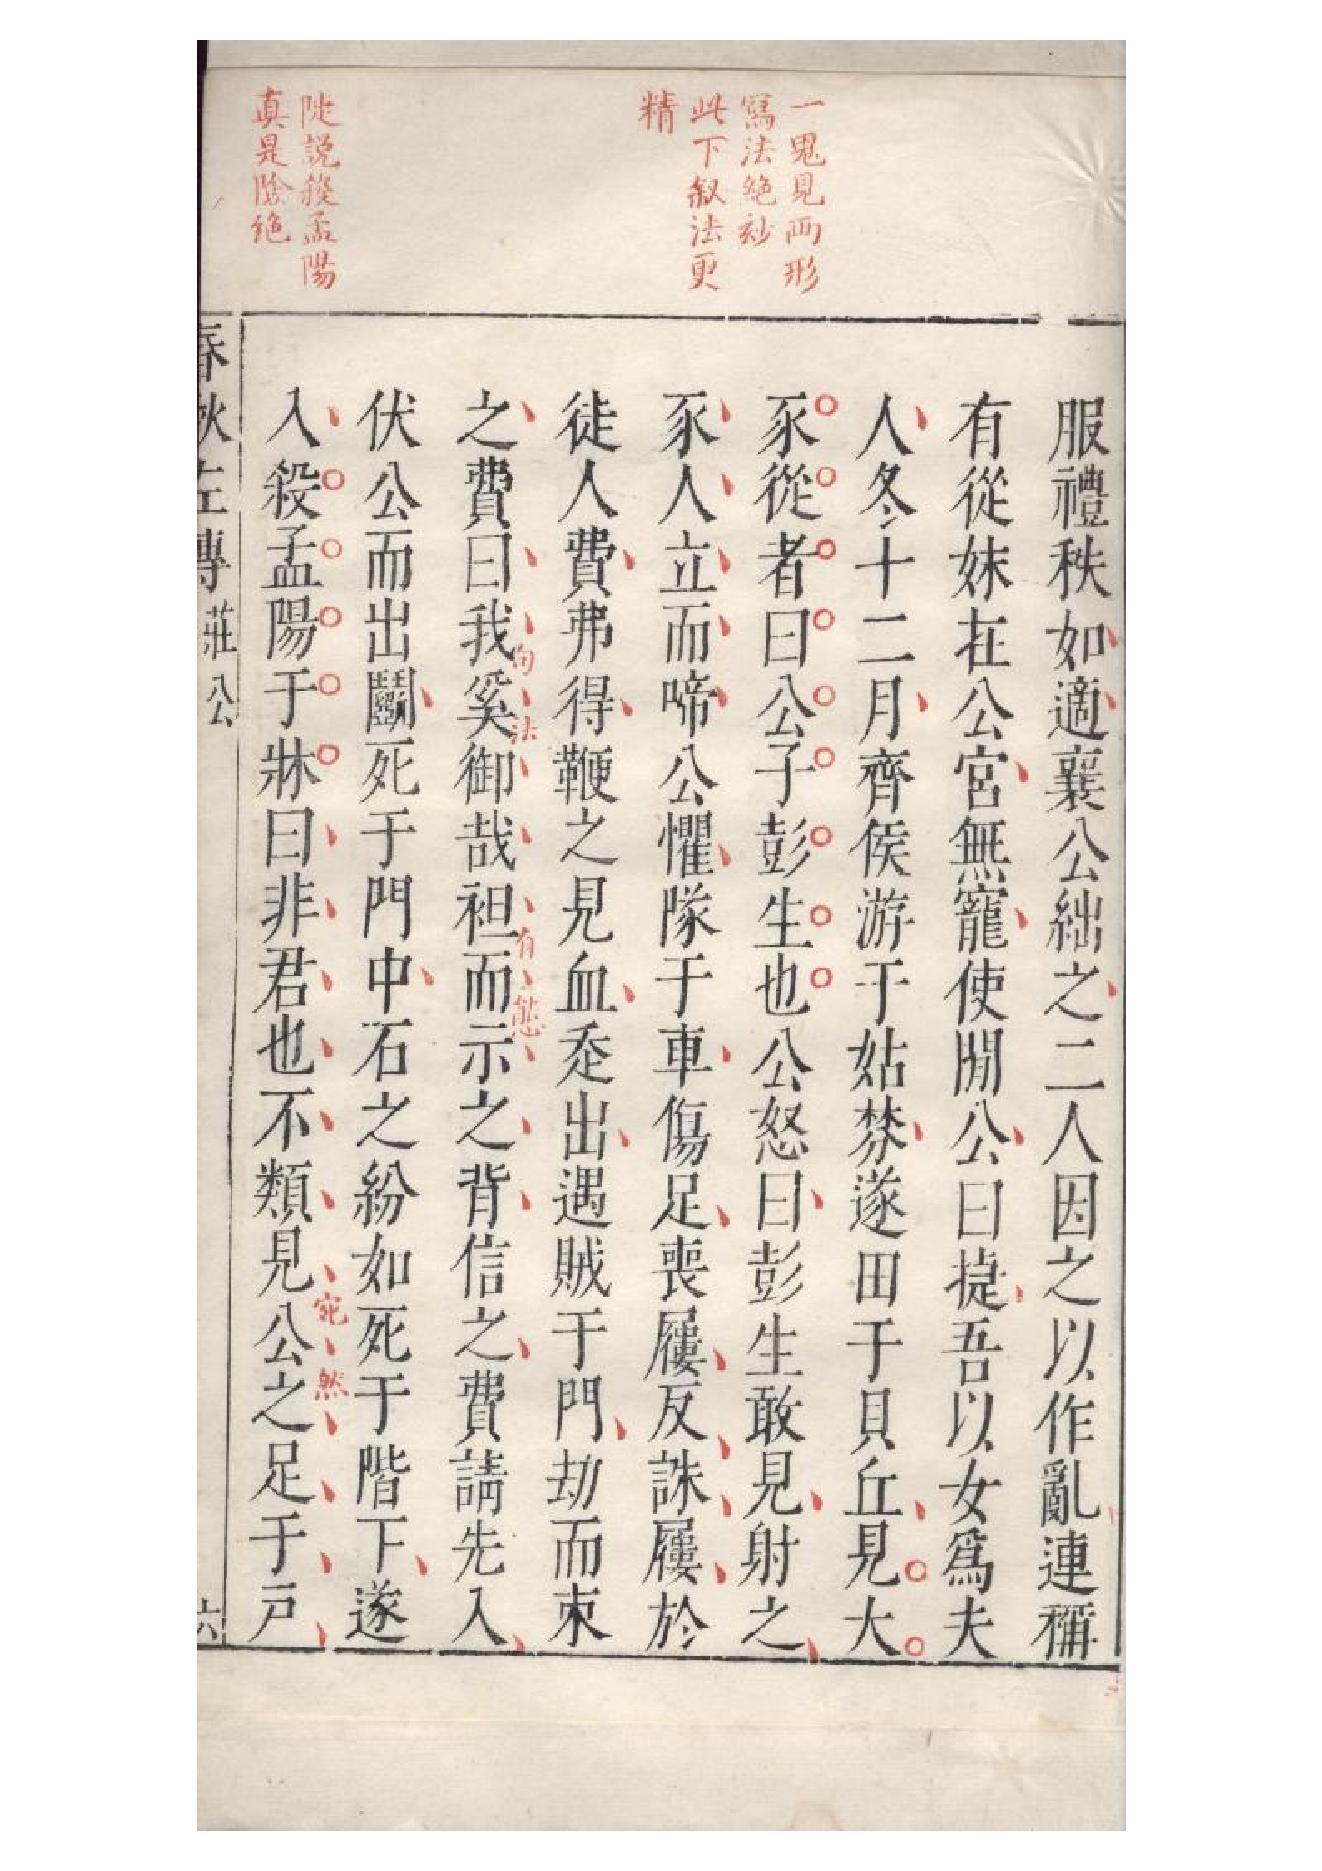 一鬼見兩形
寫法絶妙
此下敘法更
精
陡説殺孟陽
真是陰絶
服禮秩如適襄公絀之二人因之以作亂連稱
有從妹在公宮無寵使閒公曰捷吾以女爲夫
人冬十二月齊侯游于姑棼遂田于貝丘見大
豕從者曰公子彭生也公怒曰彭生敢見射之
豕人立而啼公懼隊于車傷足喪屨反誅屨於
徒人費弗得鞭之見血走出遇賊于門劫而束
之費曰我奚御哉袒而示之背信之費請先入
句法
有態
伏公而出鬭死于門中石之紛如死于階下遂
入殺孟陽于牀曰非君也不類見公之足于戶
宛然
春秋左傳 莊公 六